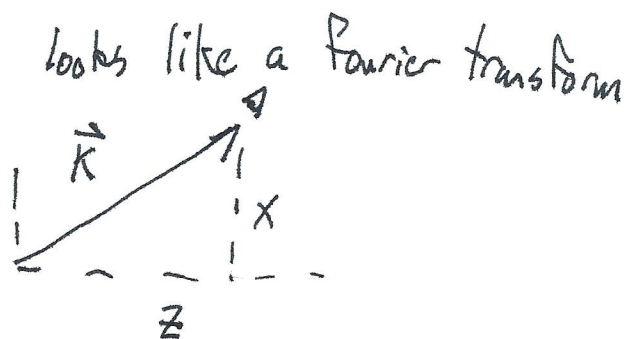 looks like a fourier transform
K⃗
x
z